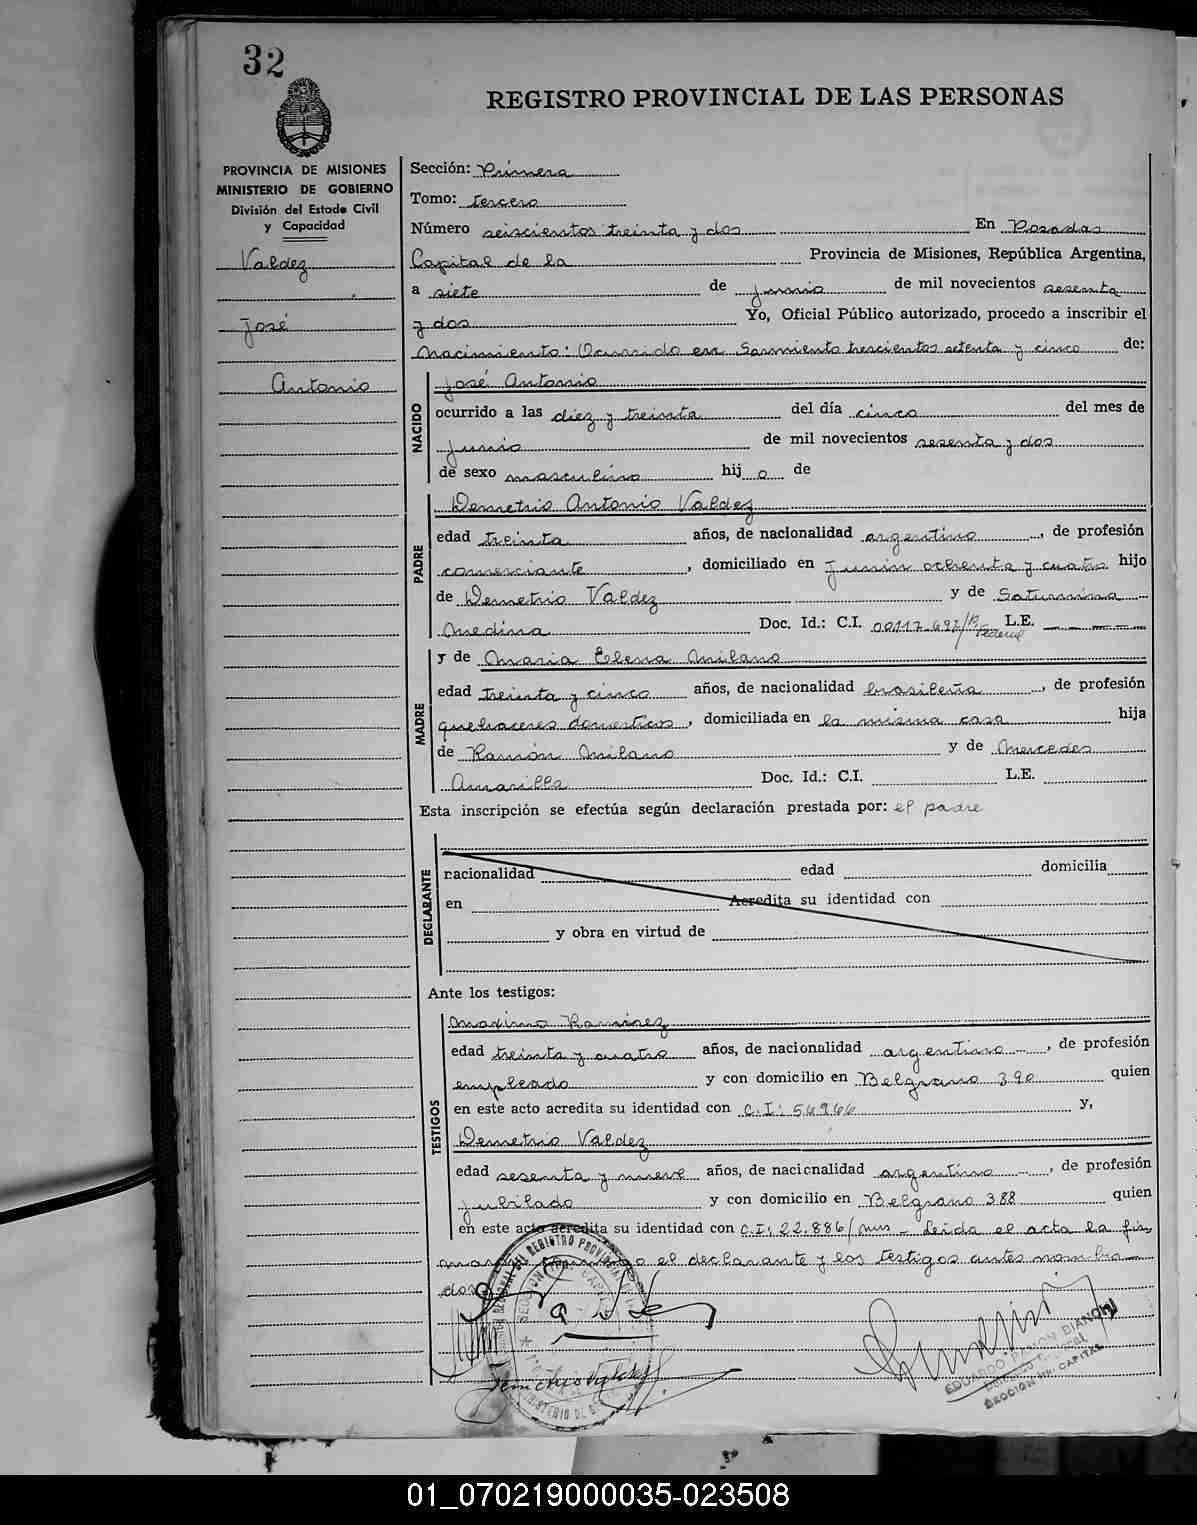 32
REGISTRO PROVINCIAL DE LAS PERSONAS
PROVINCIA DE MISIONES
MINISTERIO DE GOBIERNO
División del Estado Civil
y Capacidad
Valdez
José
Antonio
Sección: Primera
Tomo: tercero
Número seiscientos treinta y dos En Posadas
Capital de la Provincia de Misiones, República Argentina,
a siete de junio de mil novecientos sesenta
y dos Yo, Oficial Público autorizado, procedo a inscribir el
Nacimiento: Ocurrido en Sarmiento trescientos setenta y cinco de:
NACIDO
José Antonio
ocurrido a las diez y treinta del día cinco del mes de
junio de mil novecientos sesenta y dos
de sexo masculino hij o de
PADRE
Demetrio Antonio Valdez
edad treinta años, de nacionalidad argentino, de profesión
comerciante, domiciliado en Junín ochenta y cuatro hijo
de Demetrio Valdez y de Saturnina
Medina Doc. Id.: C.I. 00117.697/P. Federal L.E.
MADRE
y de Maria Elena Milano
edad treinta y cinco años, de nacionalidad brasileña, de profesión
quehaceres domesticos, domiciliada en la misma casa hija
de Ramón Milano y de Mercedes
Amarilla Doc. Id.: C.I. L.E.
Esta inscripción se efectúa según declaración prestada por: el padre
DECLARANTE
nacionalidad edad domicilia
en Acredita su identidad con
y obra en virtud de
Ante los testigos:
TESTIGOS
Maximo Ramirez
edad treinta y cuatro años, de nacionalidad argentino, de profesión
empleado y con domicilio en Belgrano 390 quien
en este acto acredita su identidad con C.I: 54966 y,
Demetrio Valdez
edad sesenta y nueve años, de nacionalidad argentino, de profesión
jubilado y con domicilio en Belgrano 388 quien
en este acto acredita su identidad con C.I: 22.886/mns - Leida el acta la fir
man el declarante y los testigos antes nombra
dos
Demetrio Valdez
EDUARDO RAMON BIANCHI
SECCION CAPITAL
01_070219000035-023508